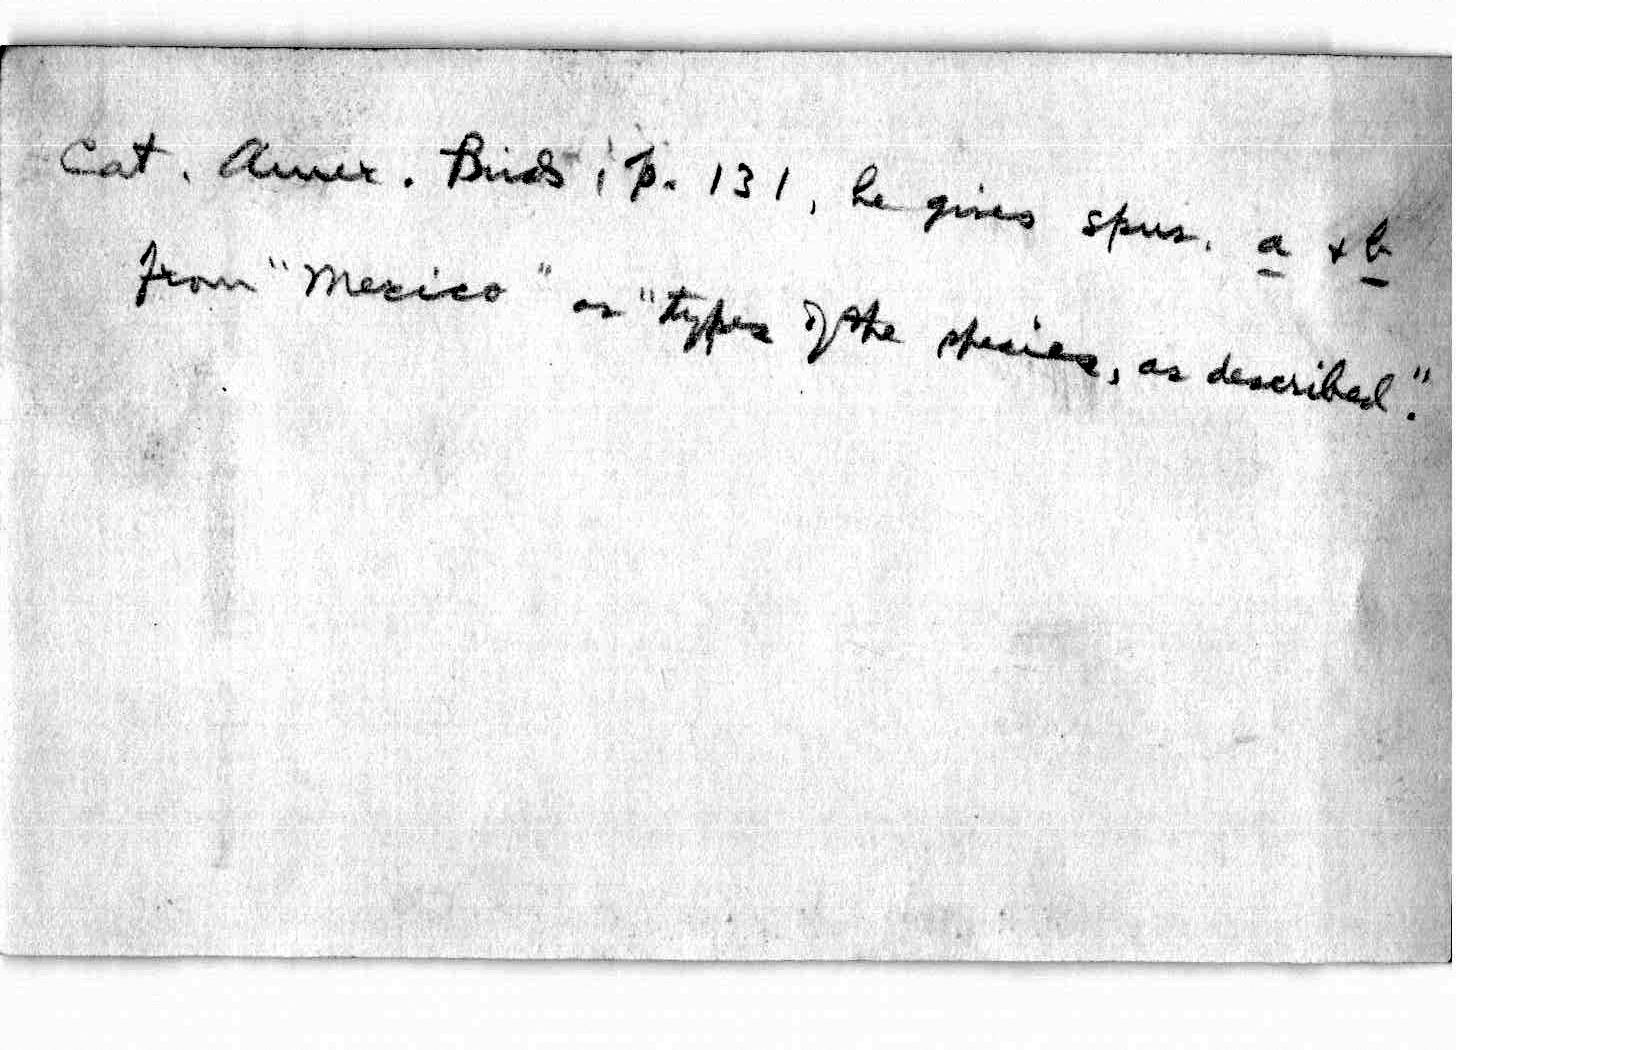 Cat. Amer. Birds, p. 131, he gives spms. a + b
from "Mexico" as "types of the species, as described."